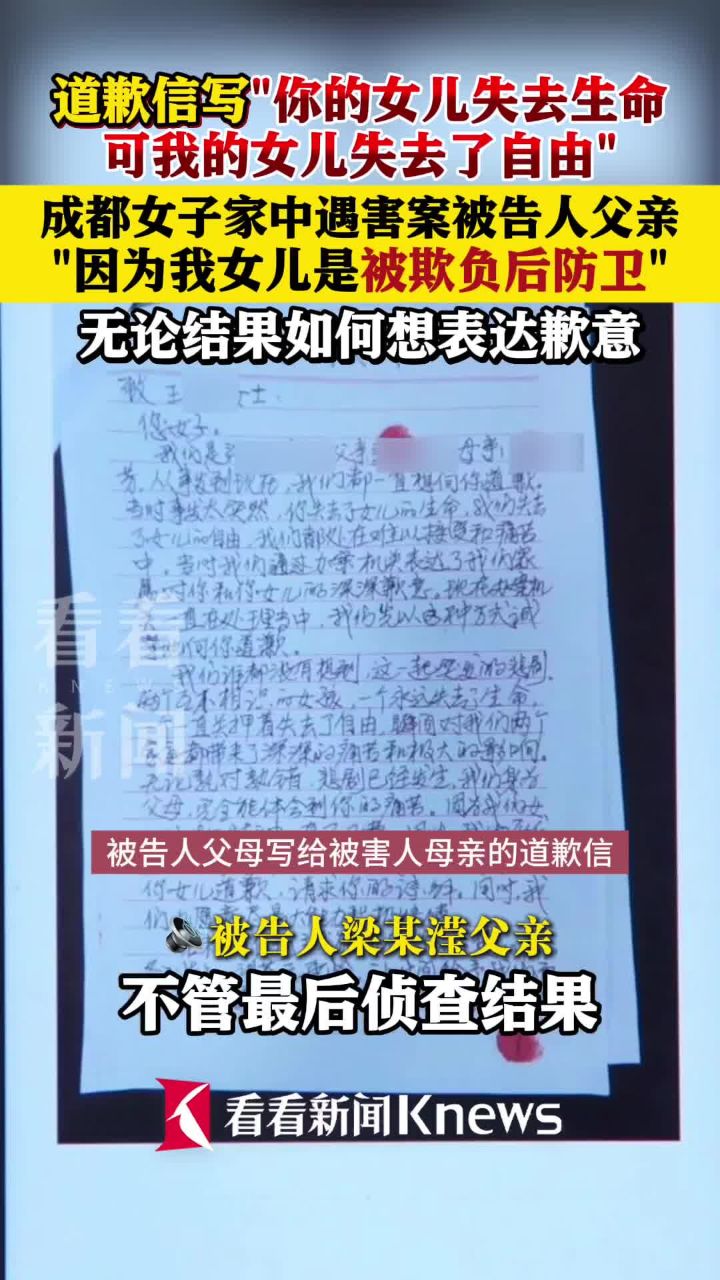 道歉信写"你的女儿失去生命
可我的女儿失去了自由"
成都女子家中遇害案被告人父亲
"因为我女儿是被欺负后防卫"
无论结果如何想表达歉意
致王 士:
您好。
我们是 父亲 母亲
芳,从事发到现在,我们都一直想向你道歉。
当时事发太突然,你失去了女儿的生命,我们失去
了女儿的自由,我们都处在难以接受和痛苦
中,当时我们通过办案机关表达了我们家
属对你和你女儿的深深歉意。现在办案机
一直在处理当中,我们先以这种方式诚
向你道歉。
我们谁都没有想到,这一起突发的悲剧,
两个互不相识的女孩,一个永远失去了生命,
直关押着失去了自由,瞬间对我们两个
家庭都带来了深深的痛苦和极大的影响。
无论孰对孰错,悲剧已经发生,我们身为
父母,完全能体会到你的痛苦。因为我们女
看看
KNEWS
新闻
被告人父母写给被害人母亲的道歉信
你女儿道歉,请求你的谅解。同时,我
们
被告人梁某滢父亲
不管最后侦查结果
看看新闻Knews